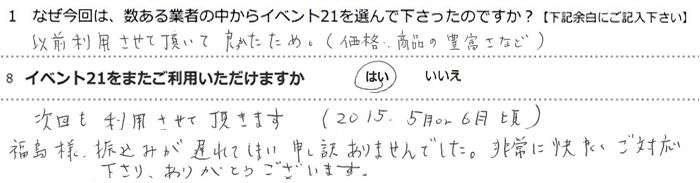 1 なぜ今回は、数ある業者の中からイベント21を選んで下さったのですか?【下記余白にご記入下さい】
以前利用させて頂いて良かったため。(価格、商品の豊富さなど)
8 イベント21をまたご利用いただけますか はい いいえ
次回も利用させて頂きます (2015. 5月or 6月頃)
福島様、振込みが遅れてしまい申し訳ありませんでした。非常に快いご対応
下さり、ありがとうございます。